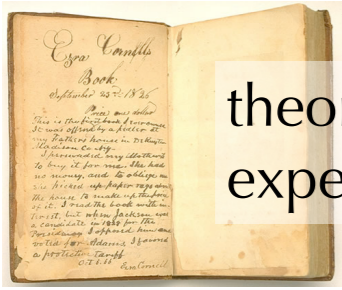 Ezra Cornell's
Book
September 23rd 1825
Price one dollar
This is the first book I ever owned
It was offered by a pedler at
my Fathers house in DeRuyter
Madison Co—N.y.
I persuaded my Mother
to buy it for me. She had
no money, and to oblige me
she picked up paper rags about
the house to make up the price
of it. I read the book with in-
terest, but when Jackson was
a candidate in 1828 for the
Presidency I opposed him and
voted for Adams I favored
a protective tariff
Oct 6. 66
Ezra Cornell
theor
expe